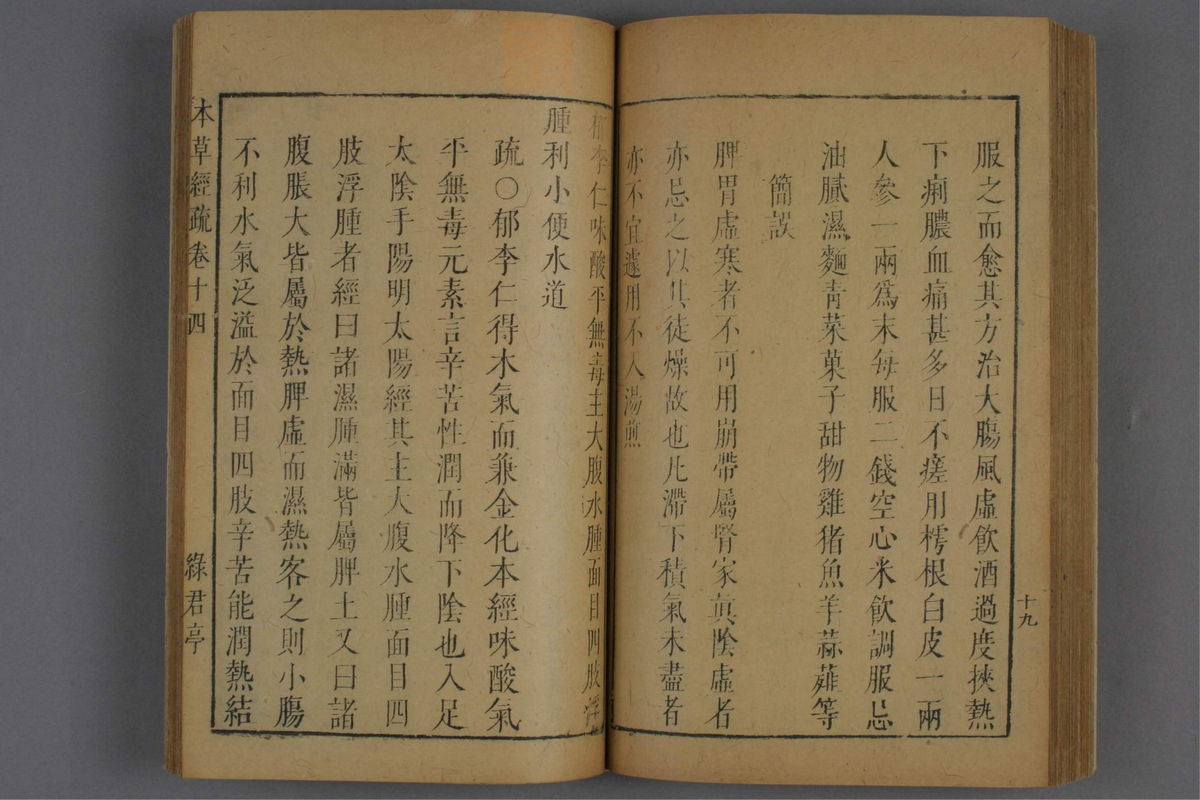 服之而愈其方治大腸風虛飲酒過度挾熱
下痢膿血痛甚多日不瘥用樗根白皮一兩
人參一兩爲末每服二錢空心米飲調服忌
油膩濕麵青菜菓子甜物雞猪魚羊蒜薤等
簡誤
脾胃虛寒者不可用崩帶屬腎家眞陰虛者
亦忌之以其徒燥故也凡滯下積氣未盡者
亦不宜遽用不入湯煎
十九
郁李仁味酸平無毒主大腹水腫面目四肢浮
腫利小便水道
疏○郁李仁得木氣而兼金化本經味酸氣
平無毒元素言辛苦性潤而降下陰也入足
太陰手陽明太陽經其主大腹水腫面目四
肢浮腫者經曰諸濕腫滿皆屬脾土又曰諸
腹脹大皆屬於熱脾虛而濕熱客之則小腸
不利水氣泛溢於面目四肢辛苦能潤熱結
本草經疏卷十四
綠君亭